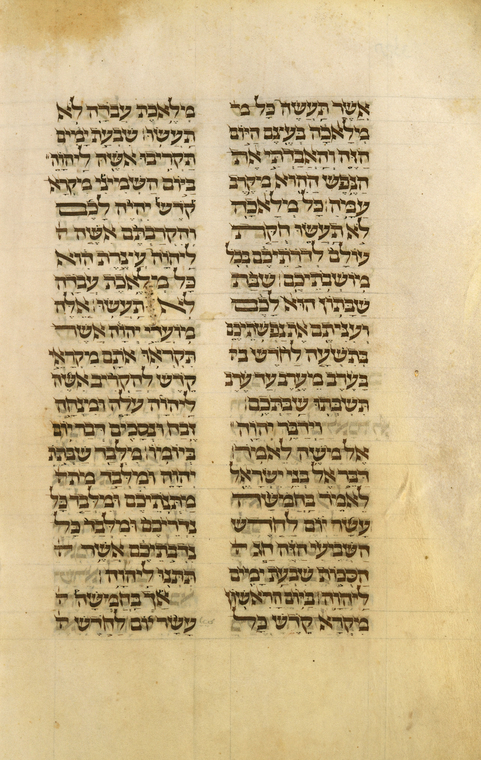 אשר תעשה כל מ
מלאכה בעצם היום
הזה והאבדתי את
הנפש ההוא מקרב
עמיה כל מלאכה
לא תעשו חקת
עולם לדרתיכם בכל
מושבתיכם שבת
שבתון הוא לכם
ועניתם את נפשתיכם
בתשעה לחדש ב
בערב מערב עד ערב
תשבתו שבתכם
וידבר יהוה
אל משה לאמר
דבר אל בני ישראל
לאמר בחמשה
עשר יום לחדש
השביעי הזה חג ה
הסכות שבעת ימים
ליהוה ביום הראשון
מקרא קדש כל
מלאכת עבדה לא
תעשו שבעת ימים
תקריבו אשה ליהוה
ביום השמיני מקרא
קדש יהיה לכם
והקרבתם אשה ה
ליהוה עצרת הוא
כל מלאכת עבדה
לא תעשו אלה
מועדי יהוה אשר
תקראו אתם מקראי
קדש להקריב אשה
ליהוה עלה ומנחה
זבח ונסכים דבר יום
ביומו מלבד שבתת
יהוה ומלבד מתת
מתנתיכם ומלבד כל
נדריכם ומלבד כל
נדבתיכם אשר ה
תתנו ליהוה
אך בחמשה ה
עשר יום לחדש ה